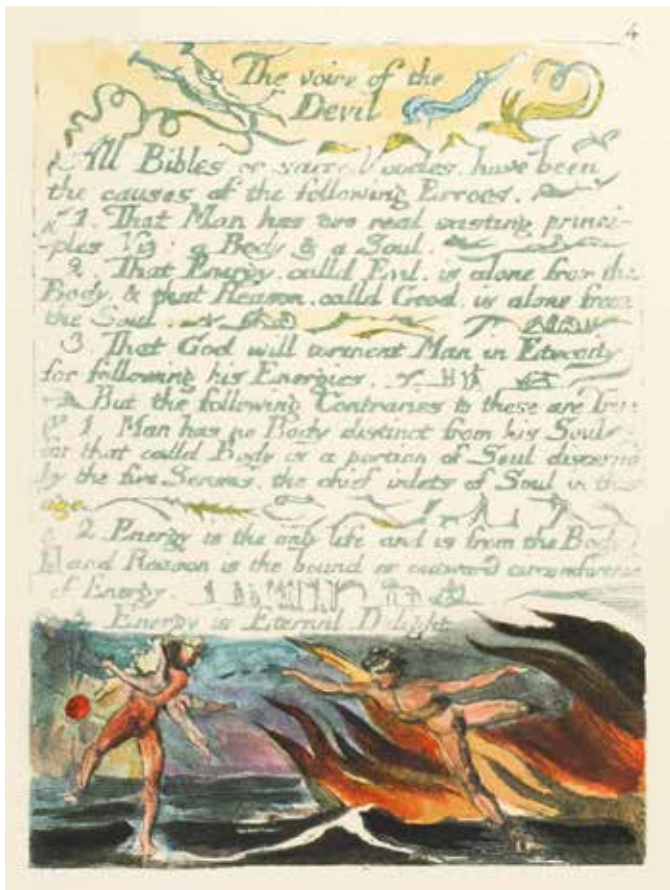 4
The voice of the
Devil
All Bibles or sacred codes. have been
the causes of the following Errors.
1. That Man has two real existing princi-
-ples Viz: a Body & a Soul.
2. That Energy. calld Evil. is alone from the
Body. & that Reason. calld Good. is alone from
the Soul.
3 That God will torment Man in Eternity
for following his Energies.
But the following Contraries to these are True
1 Man has no Body distinct from his Soul
for that calld Body is a portion of Soul discernd
by the five Senses. the chief inlets of Soul in this
age
2 Energy is the only life and is from the Body
and Reason is the bound or outward circumference
of Energy.
Energy is Eternal Delight